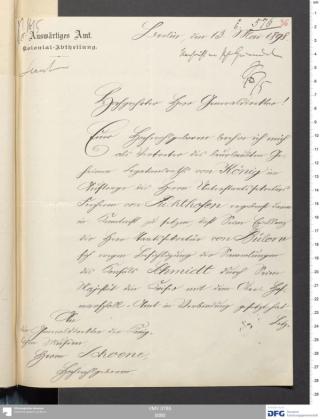 Auswärtiges Amt.
Kolonial-Abtheilung.
Berlin, den 13. Mai 1898
Hochgeehrter Herr Generaldirektor!
Euer Hochwohlgeboren beehre ich mich
als Vertreter des beurlaubten Ge-
heimen Legationsraths von König im
Auftrage des Herrn Unterstaatssekretärs
Freiherrn von Richthofen ergebenst davon
in Kenntniß zu setzen, daß Seine Excellenz
der Herr Staatssekretär von Bülow
sich wegen Besichtigung der Sammlungen
des Konsuls Schmidt durch Seine
Majestät den Kaiser mit dem Ober-Hof
marschall-Amt in Verbindung gesetzt hat.
An
den Generaldirektor der König-
lichen Museen
Herrn Schoene,
Hochwohlgeboren
DFG